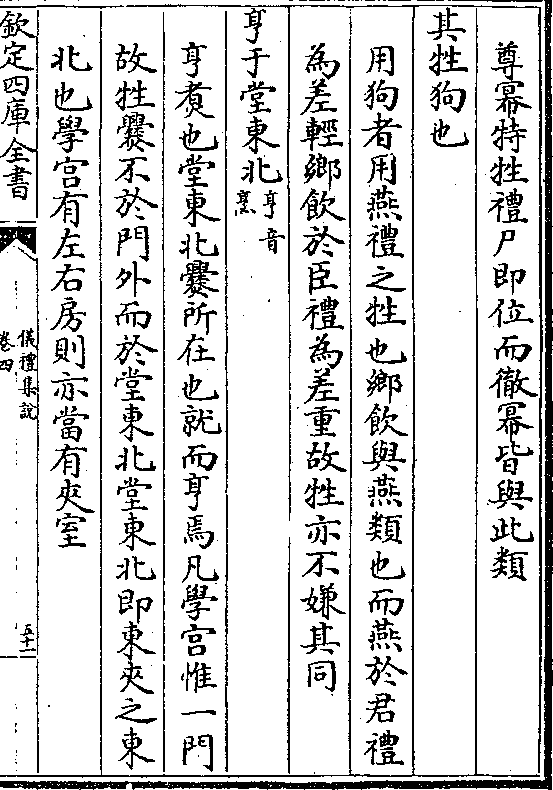 尊冪特牲禮尸即位而徹冪皆與此類
其牲狗也
用狗者用燕禮之牲也鄉飲與燕類也而燕於君禮
為差輕鄉飲於臣禮為差重故牲亦不嫌其同
亨于堂東北亨音烹
亨煑也堂東北爨所在也就而亨焉凡學宫惟一門
故牲爨不於門外而於堂東北堂東北即東夾之東
北也學宫有左右房則亦當有夾室
欽定四庫全書
儀禮集說
卷四
五十二